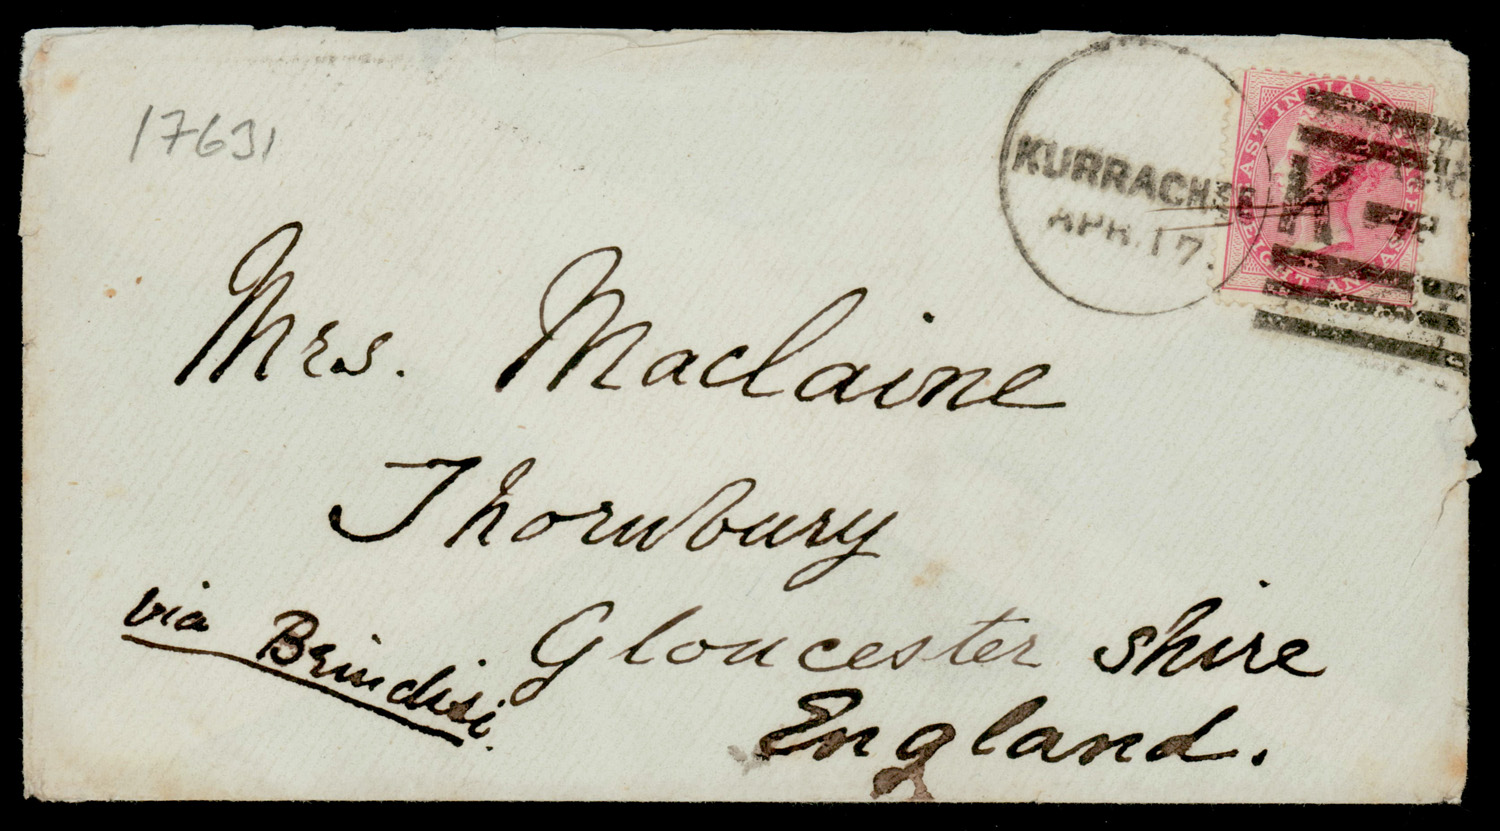 17631
KURRACHEE
APR. 17.
EAST INDIA POSTAGE
EIGHT ANNAS
K-
Mrs. Maclaine
Thornbury
Gloucester shire
England.
via Brindisi.